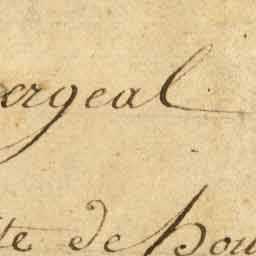 ergeal
te de pou